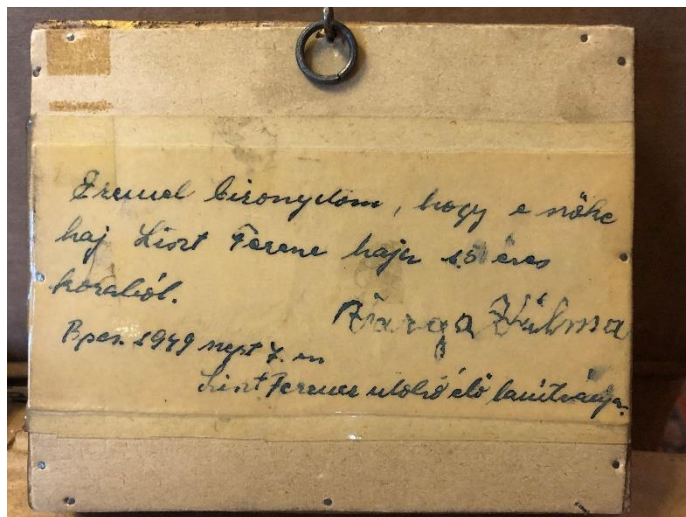 Ezennel bizonyitom, hogy e szőke
haj Liszt Ferenc haja 15 éves
korából.
Varga Vilma
Bpest. 1949 szept 7.-én
Liszt Ferenc utolsó élő tanítványa.